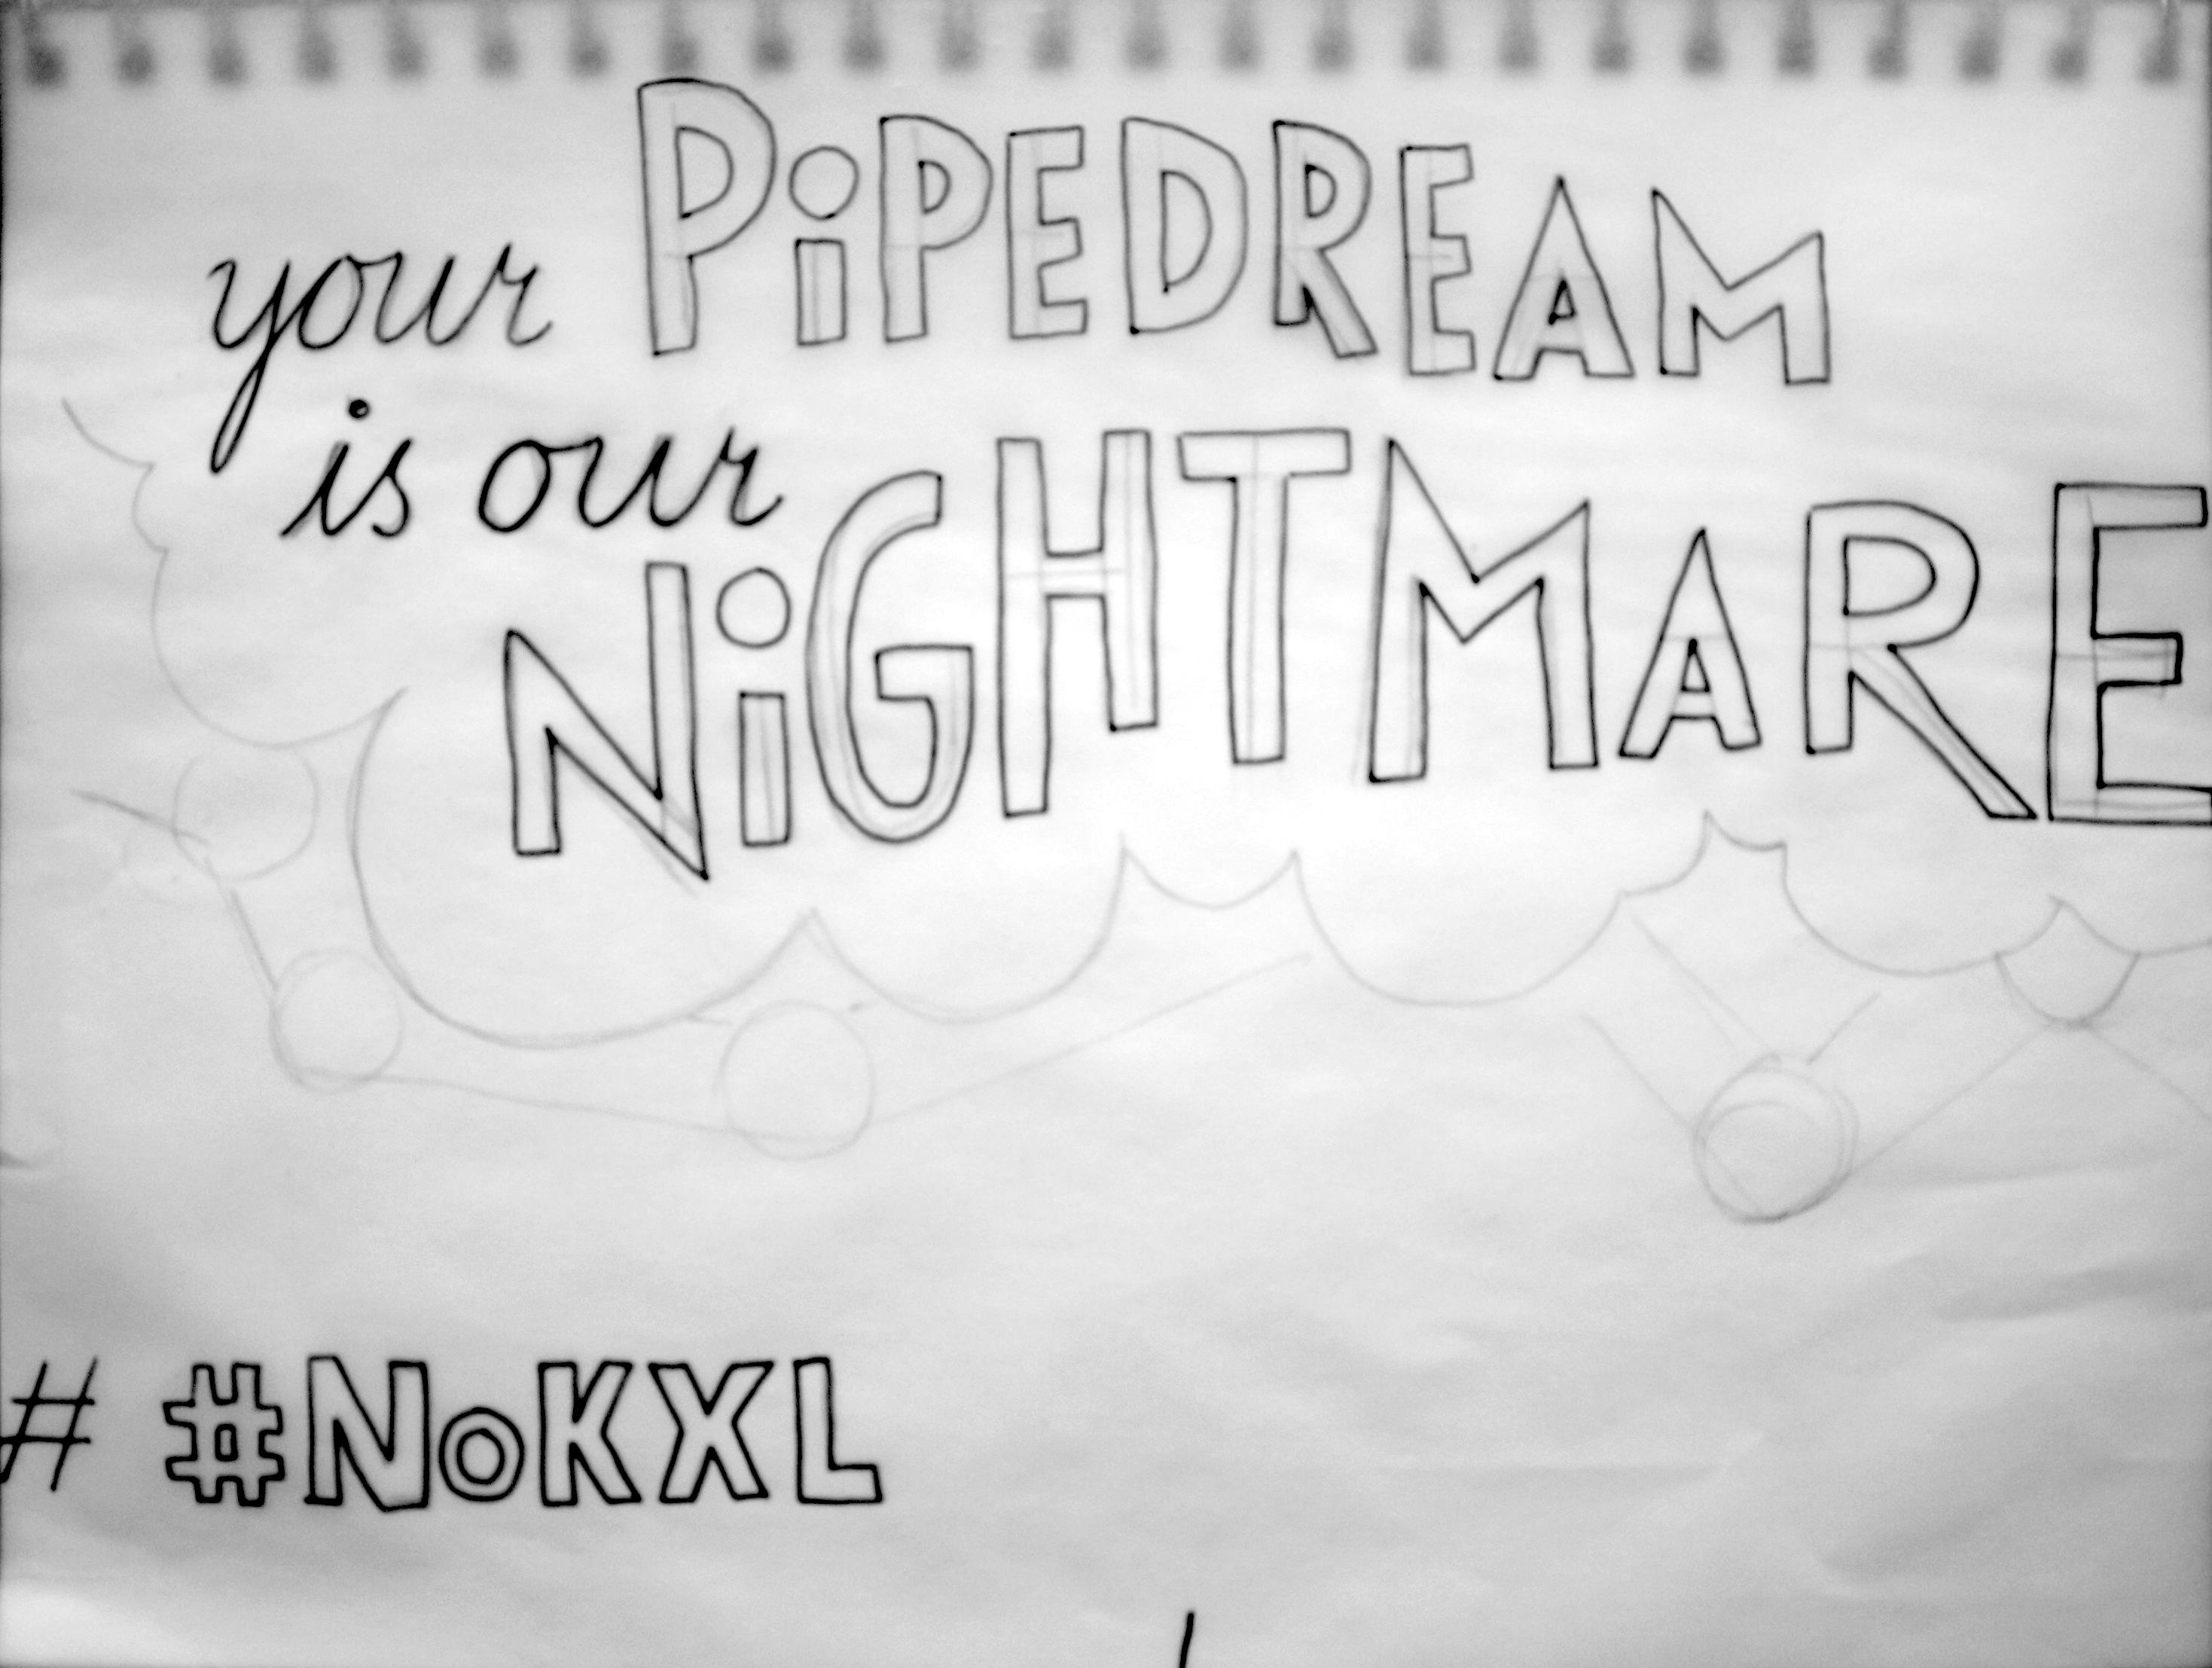 your PiPEDREAM
is our
NiGHTMARE
# #NoKXL